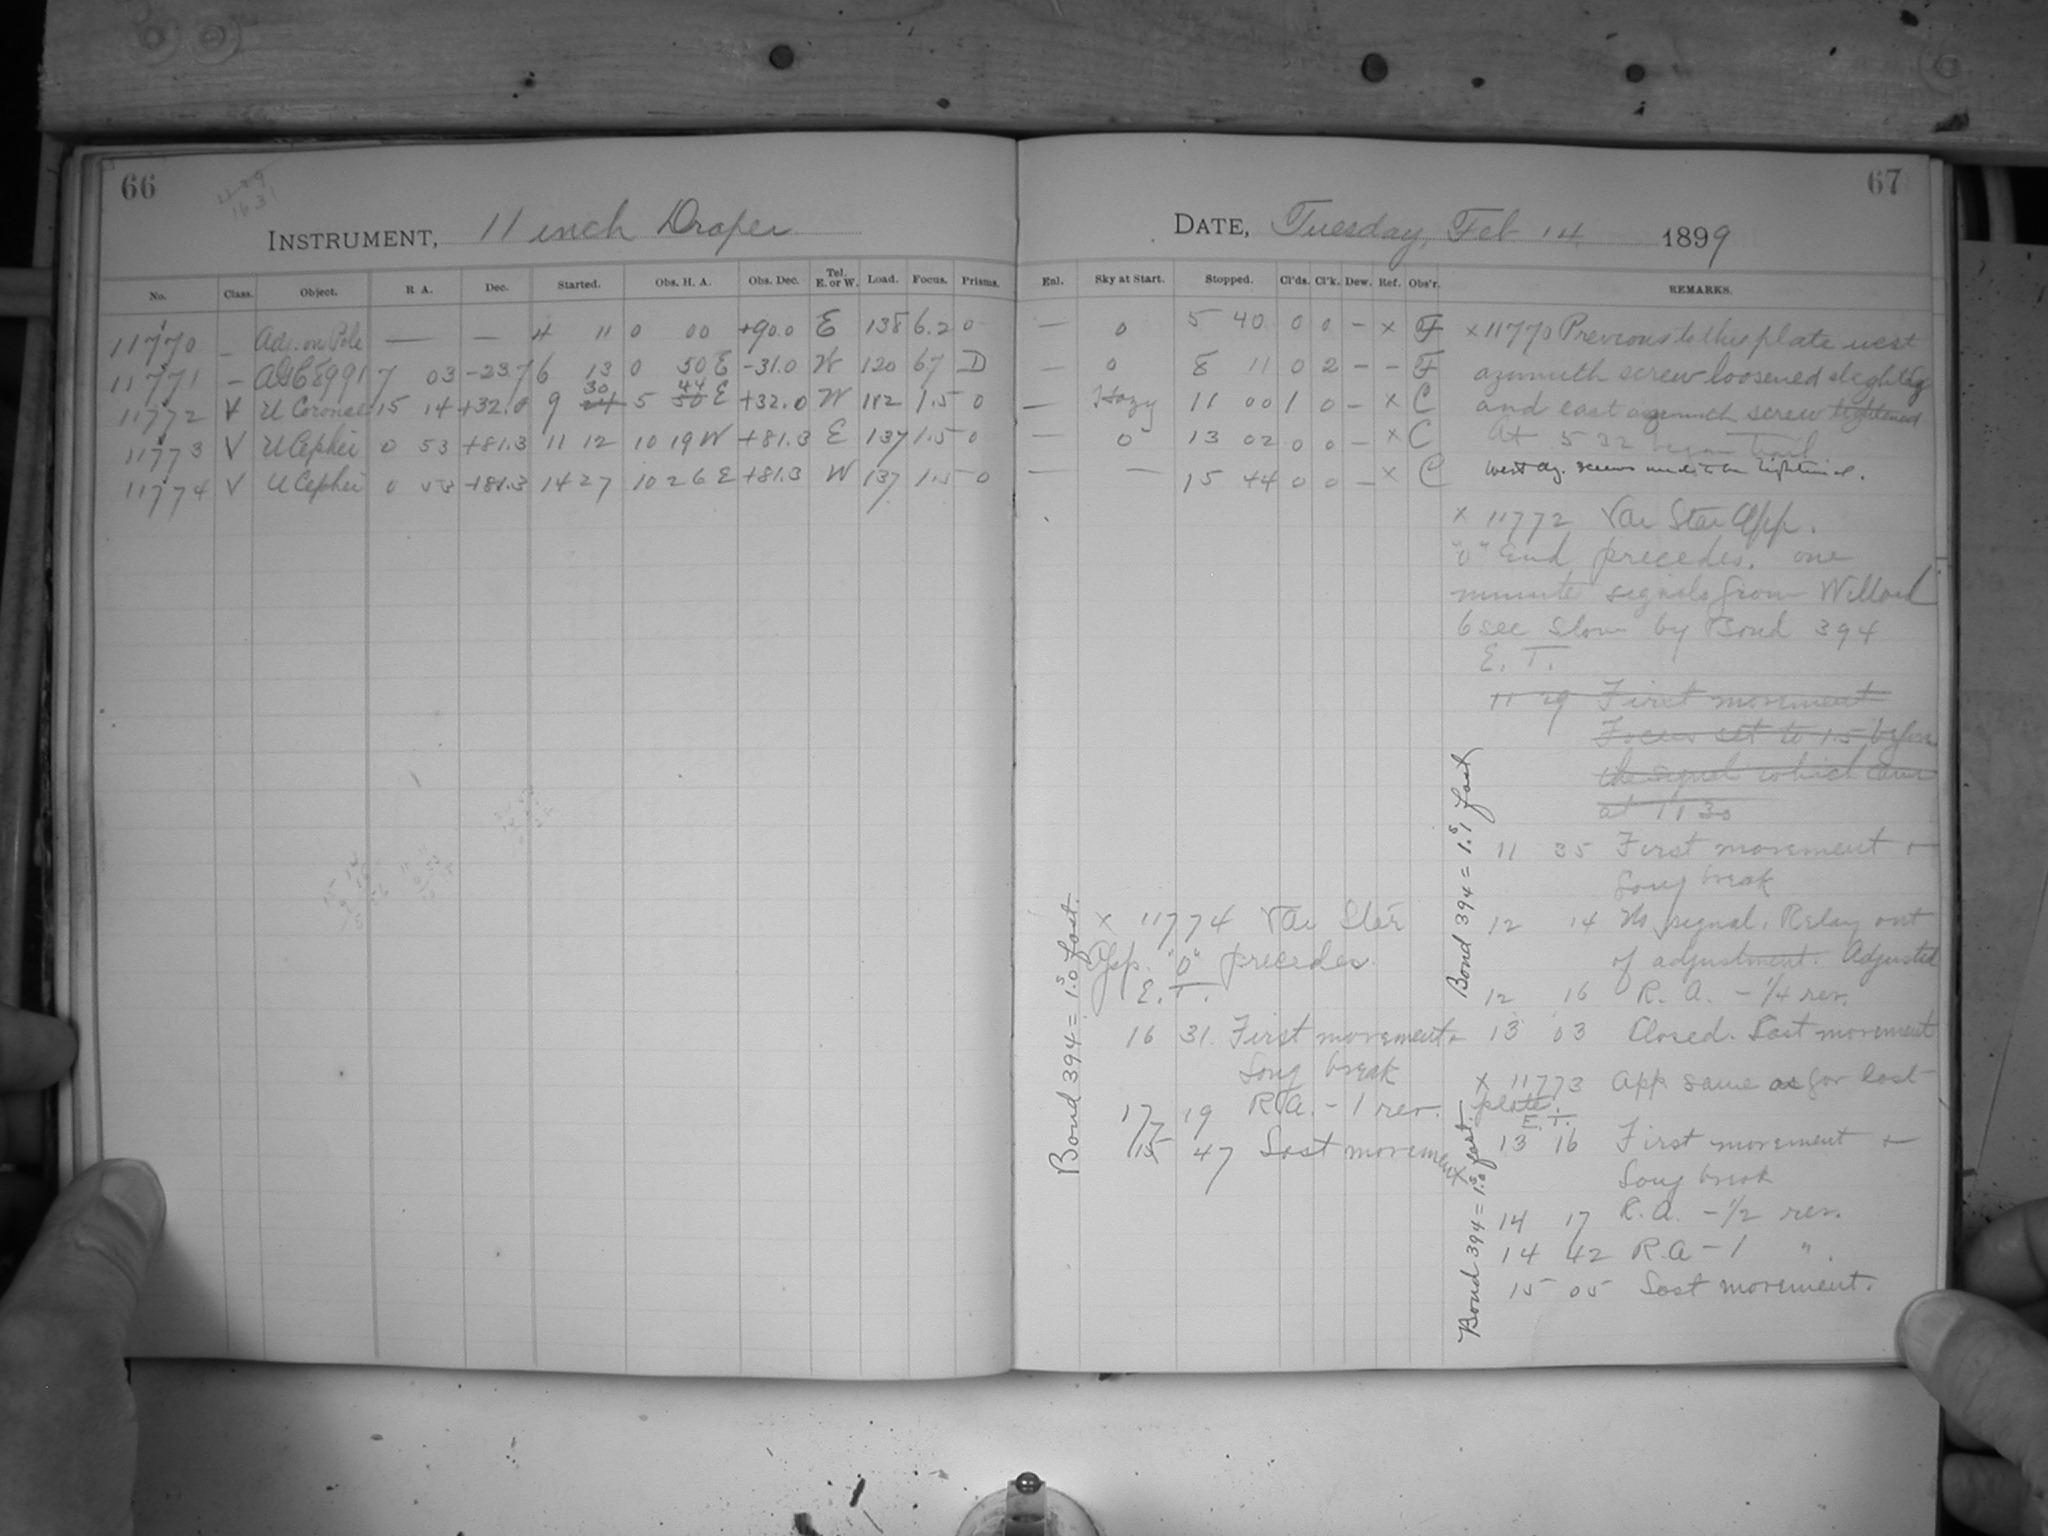 66
1631
INSTRUMENT, 11 inch Draper
No. Class. Object. R. A. Dec. Started. Obs. H. A. Obs. Dec. Tel. E. or W. Load. Focus. Prisms.
11770 – Adj. on Pole — — 4 11 0 00 +90.0 E 138 6.2 0
11771 – AGC 8991 7 03 -23.7 6 13 0 50 E -31.0 W 120 67 D
11772 V U Coronae 15 14 +32.0 9 30 5 44 E +32.0 W 112 1.5 0
11773 V U Cephei 0 53 +81.3 11 12 10 19 W +81.3 E 137 1.5 0
11774 V U Cephei 0 53 +81.3 14 27 10 26 E +81.3 W 137 1.5 0
67
DATE, Tuesday, Feb 14 1899
Enl. Sky at Start. Stopped. Cl'ds. Cl'k. Dew. Ref. Obs'r. REMARKS.
— 0 5 40 0 0 – × F
— 0 8 11 0 2 – – F
— Hazy 11 00 1 0 – × C
— 0 13 02 0 0 – × C
— — 15 44 0 0 – × C
× 11770 Previous to this plate west
azimuth screw loosened slightly
and east azimuth screw tightened
At 5 32 began Trail
West az. screw needs to be tightened.
× 11772 Var Star App.
"0" End precedes. one
minute signals from Willard
6 sec slow by Bond 394
E. T.
11 29 First movement
Focus set to 1.5 before
the signal which came
at 11 30
11 35 First movement +
Long break
12 14 No signal. Relay out
of adjustment. Adjusted
12 16 R. A. – 1/4 rev.
13 03 Closed. Last movement
Bond 394 = 1.1s fast
× 11773 App same as for last
plate.
E. T.
13 16 First movement +
Long break
14 17 R. A. – 1/2 rev.
14 42 R. A – 1 "
15 05 Last movement.
Bond 394 = 1.0s fast
× 11774 Var Star
App. "0" precedes.
E. T.
16 31 First movement +
Long break
17 19 R. A. – 1 rev.
17 47 Last movement
Bond 394 = 1.0s fast.